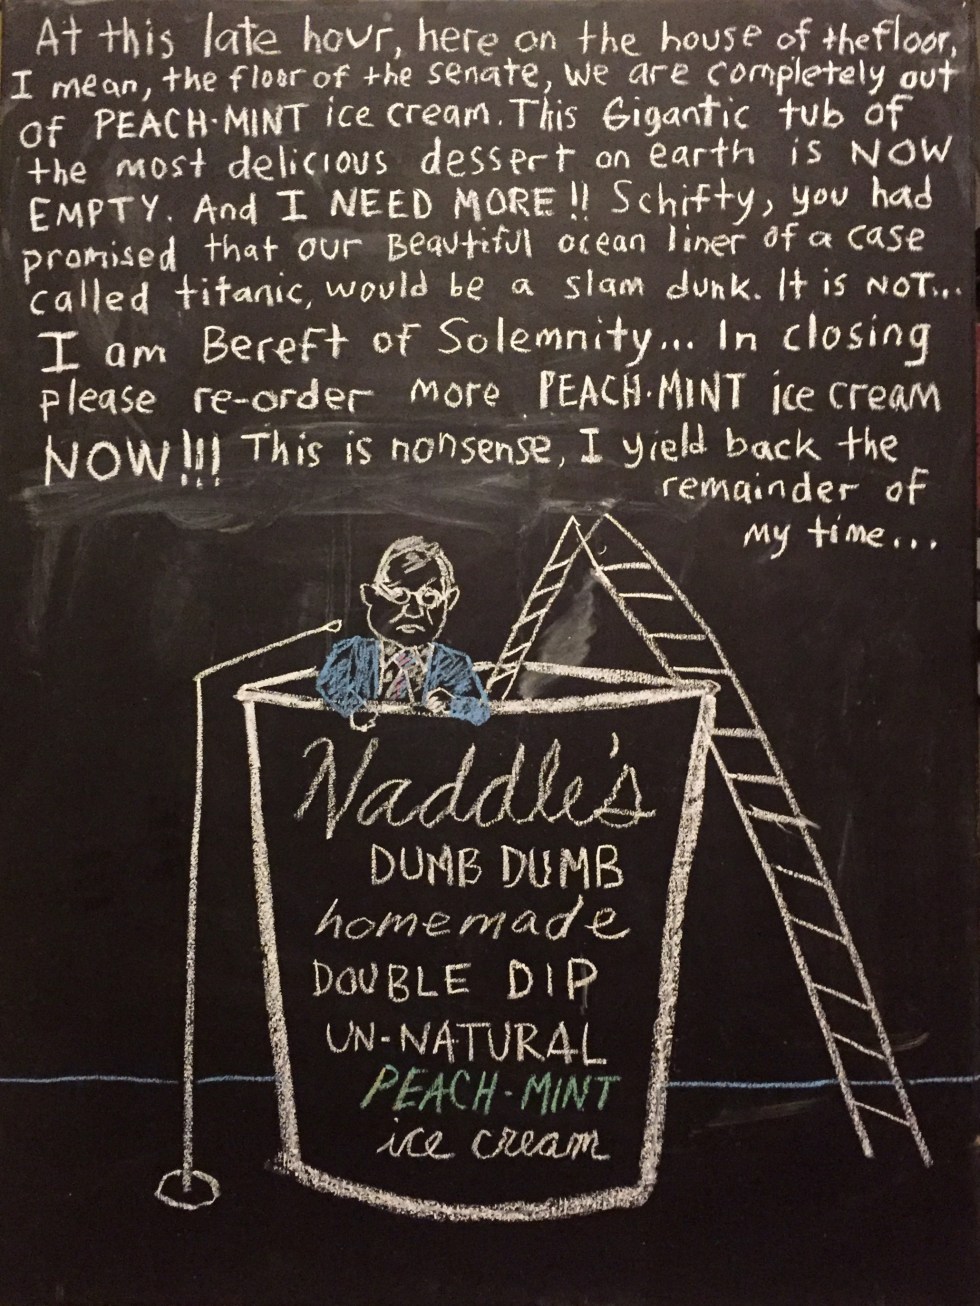 At this late hour, here on the house of the floor,
I mean, the floor of the senate, we are completely out
of PEACH-MINT ice cream. This Gigantic tub of
the most delicious dessert on earth is NOW
EMPTY. And I NEED MORE!! Schifty, you had
promised that our Beautiful ocean liner of a case
called titanic, would be a slam dunk. It is NOT...
I am Bereft of Solemnity... In closing
please re-order more PEACH-MINT ice cream
NOW!!! This is nonsense, I yield back the
remainder of
my time...
Naddle's
DUMB DUMB
homemade
DOUBLE DIP
UN-NATURAL
PEACH-MINT
ice cream